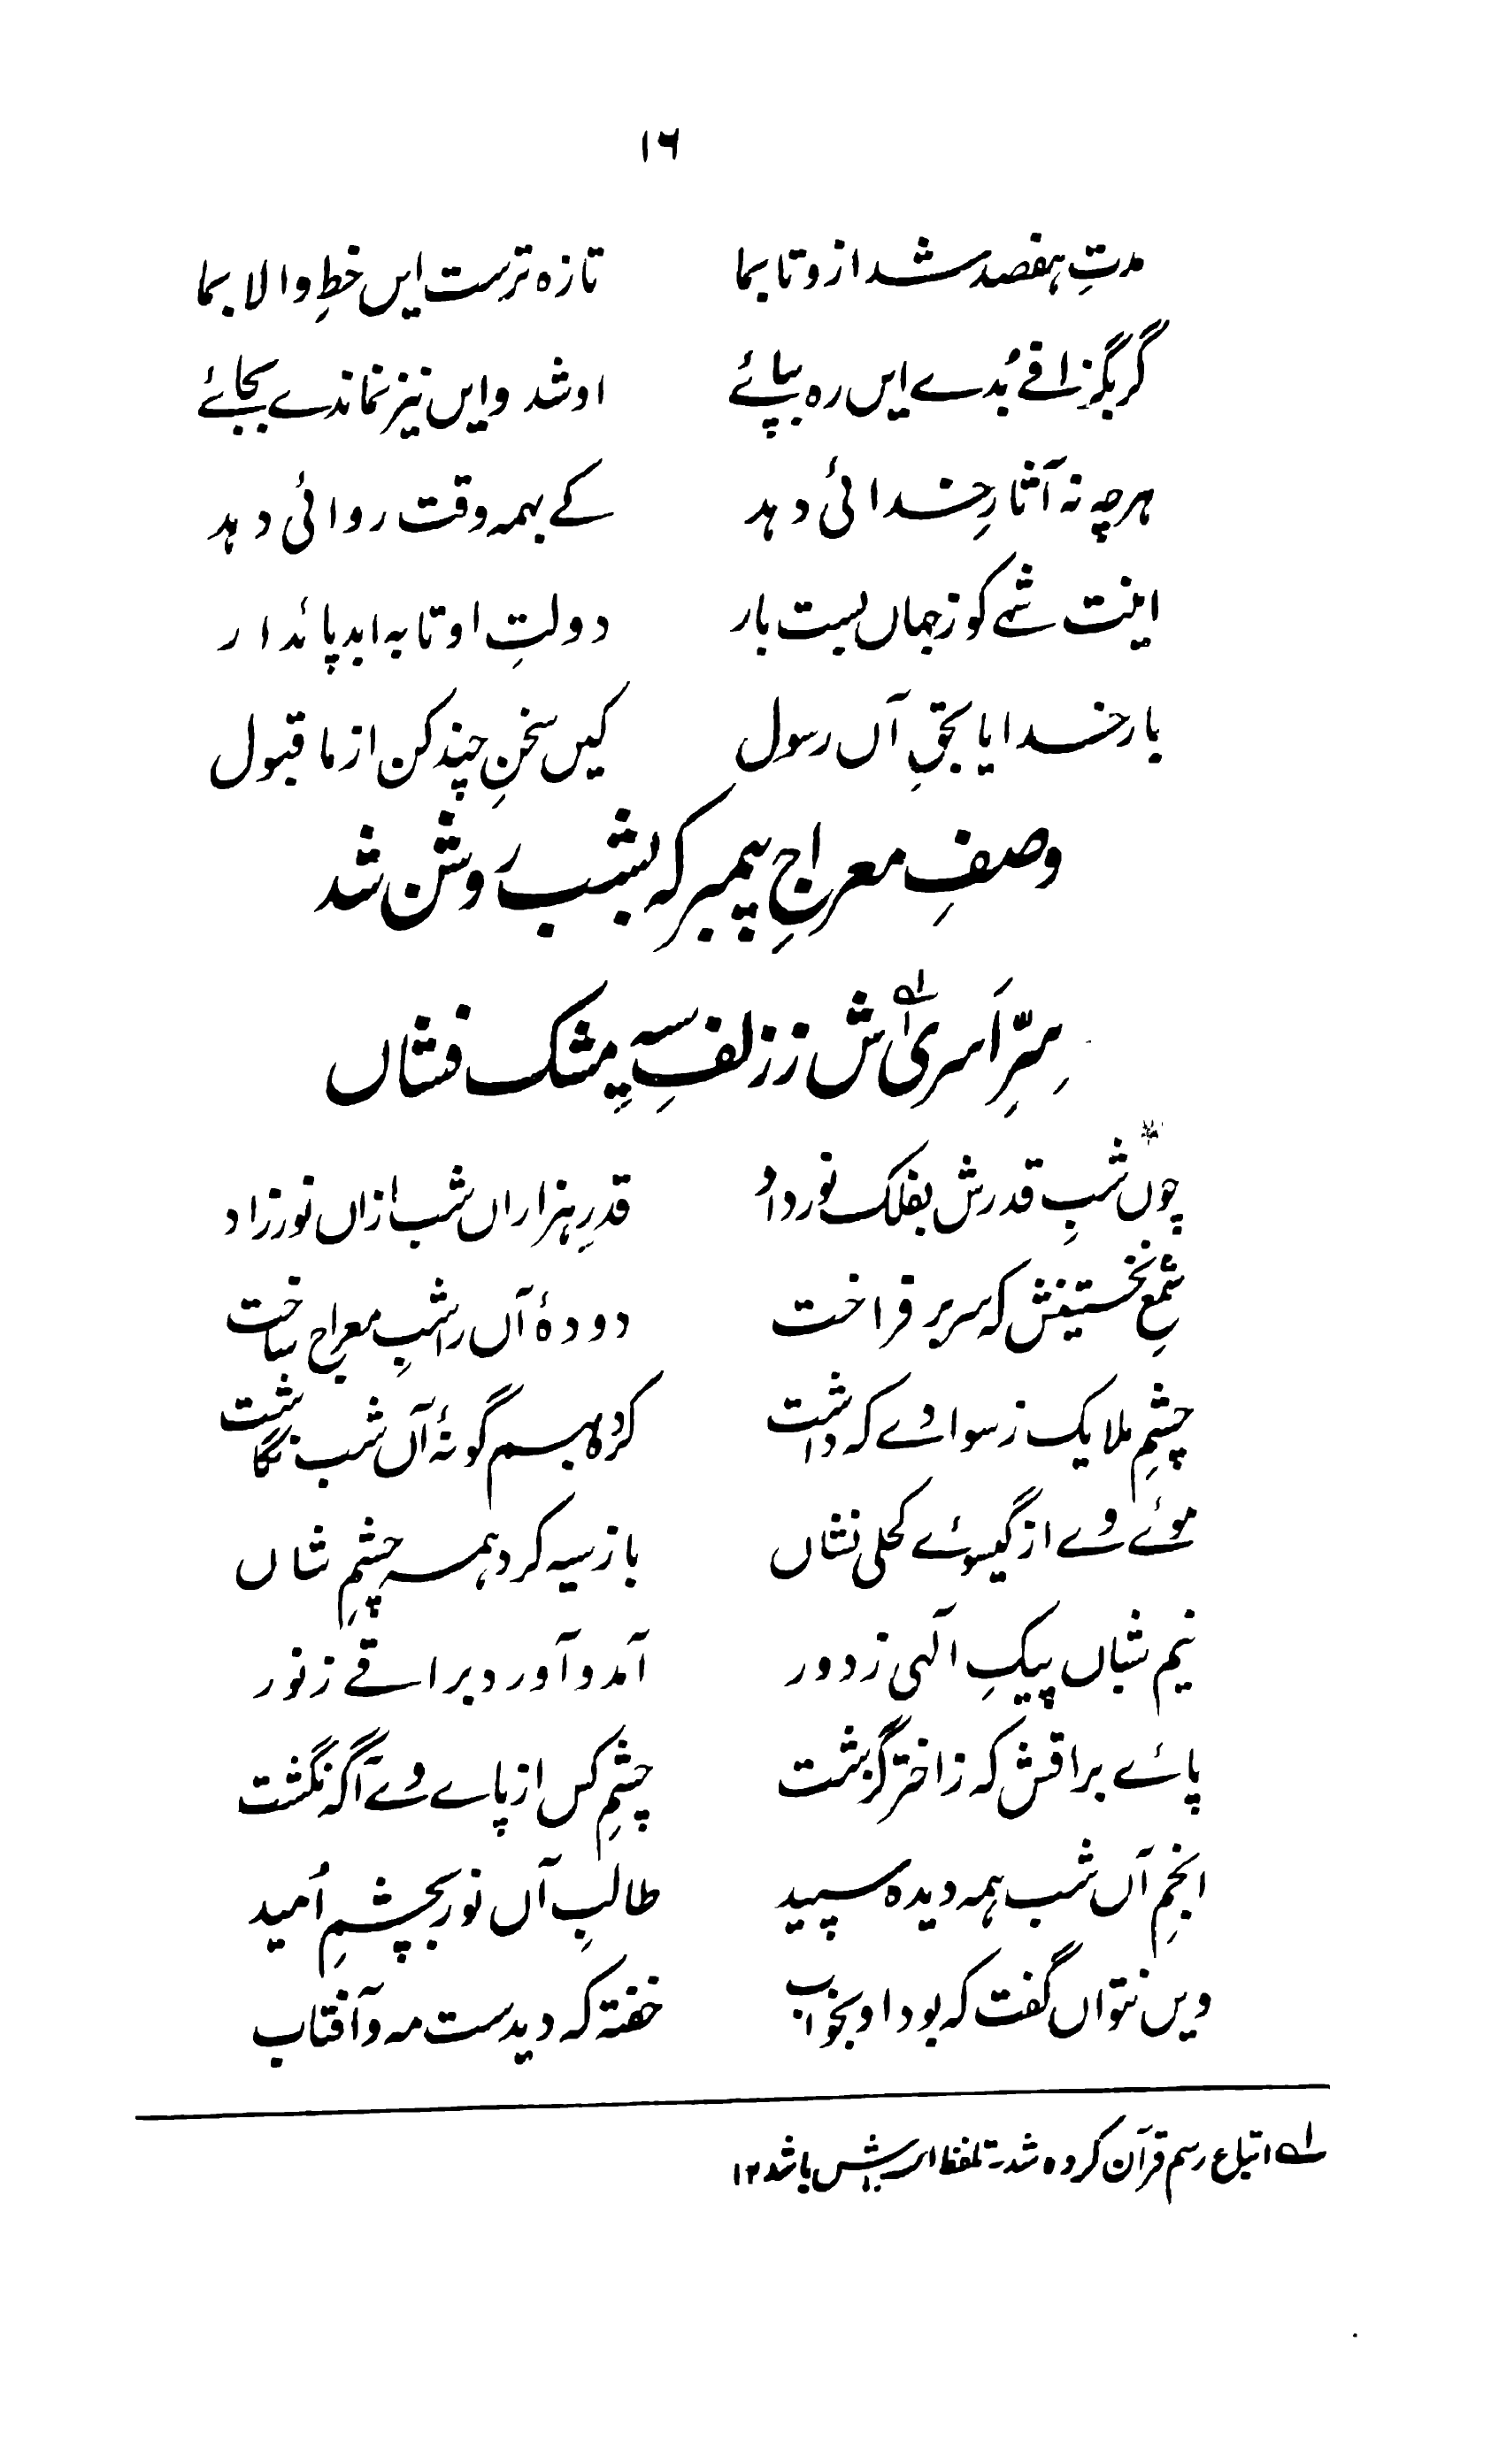 ۱۶
مدتِ ہفصد شد ازو تا بما تازہ ترست ایں خطِ والا بما
گر بگزافے بُدے ایں رہ بپائے او شد و ایں نیز نماندے بجائے
ہرچہ نہ آثارِ خدائی دہد کے بہمہ وقت روائی دہد
اینت شے کو ز جہاں بست بار دولتِ او تا بہ ابد پائدار
بار خدایا بحقِ آں رسول کیں سخنِ چند کن از ما قبول
وصفِ معراجِ پیمبر کہ بشب روشن شد
سِرِّ اَسریٰ اش ز زلفِ سیہِ مشک فشاں
چوں شبِ قدرش بفلک نور داد قدرِ ہزاراں شب ازاں نور زاد
شمعِ نخستینش کہ سر بر فراخت دودۂ آں را شبِ معراج ساخت
چشمِ ملایک ز سوادے کہ داشت کردہ بسم گونۂ آں شب نگاشت
موئے وے از گیسوئے کحلی نشاں باز سیہ کرد ہمہ چشمِ شاں
نیم شباں پیکِ الٰہی ز دور آمد و آورد براقے ز نور
پائے براقش کہ ز اختر گزشت چشمِ کس از پاے وے آگہ نگشت
انجمِ آں شب ہمہ دیدہ سپید طالبِ آں نور بچشمِ اُمید
ویں نتواں گفت کہ بود او بخواب خفتہ کہ دیدست مہ و آفتاب
لہ اتباع رسم قرآن کردہ شد۔ تلفظا اسریش باشد ۱۲